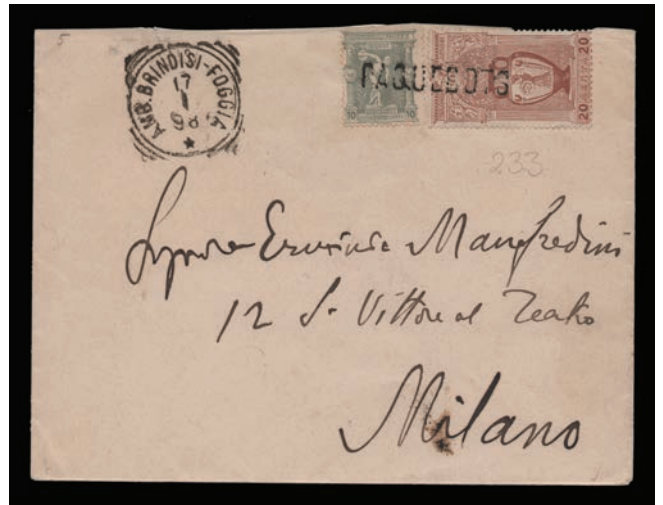 5
AMB. BRINDISI-FOGGIA
17
1
98 S
PAQUEBOTS
10
10
20
20
233
Signora Erminia Manfredini
12 S. Vittore al Teatro
Milano